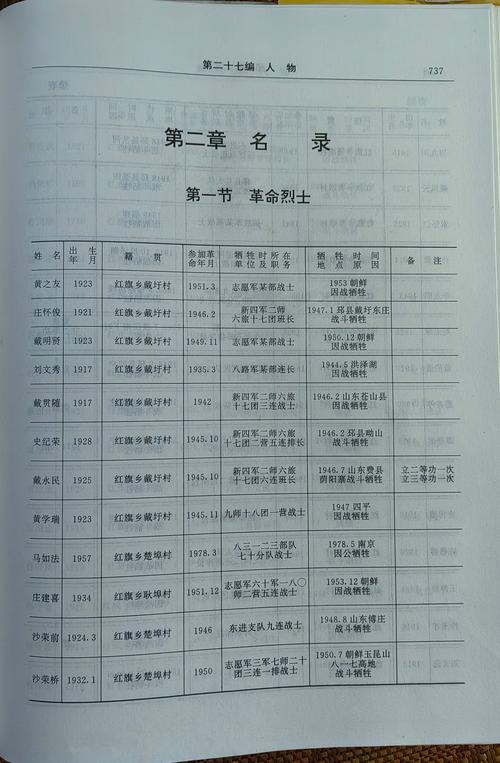 第二十七编 人 物 737
第二章 名 录
第一节 革命烈士
姓 名 出 生年 月 籍 贯 参加革命年月 牺牲时所在单位及职务 牺牲时间地点原因 备 注
黄之友 1923 红旗乡戴圩村 1951.3 志愿军某部战士 1953 朝鲜因战牺牲
庄怀俊 1921 红旗乡戴圩村 1946.2 新四军二师六旅十七团班长 1947.1 邳县戴圩东庄战斗牺牲
戴明贤 1923 红旗乡戴圩村 1949.11 志愿军某部战士 1950.12 朝鲜因战牺牲
刘文秀 1917 红旗乡戴圩村 1935.3 八路军某部连长 1944.5 洪泽湖因战牺牲
戴贯随 1917 红旗乡戴圩村 1942 新四军二师六旅十七团三连战士 1946.2 山东苍山县因战牺牲
史纪荣 1928 红旗乡戴圩村 1945.10 新四军二师六旅十七团二营五连排长 1946.2 邳县呦山战斗牺牲
戴永民 1925 红旗乡戴圩村 1945.10 新四军二师六旅十七团六连班长 1946.7 山东费县荫阳寨战斗牺牲 立二等功一次立三等功一次
黄学瑞 1923 红旗乡戴圩村 1945.11 九师十八团一营战士 1947 四平因战牺牲
马如法 1957 红旗乡楚埠村 1978.3 八三一二三部队七十分队战士 1978.5 南京因公牺牲
庄建喜 1934 红旗乡耿埠村 1951.12 志愿军六十军一八〇师二营五连战士 1953.12 朝鲜因战牺牲
沙荣前 1924.3 红旗乡楚埠村 1946 东进支队九连战士 1948.8 山东傅庄战斗牺牲
沙荣桥 1932.1 红旗乡楚埠村 1950 志愿军三军七师二十团三连一排战士 1950.7 朝鲜玉昆山八一七高地战斗牺牲